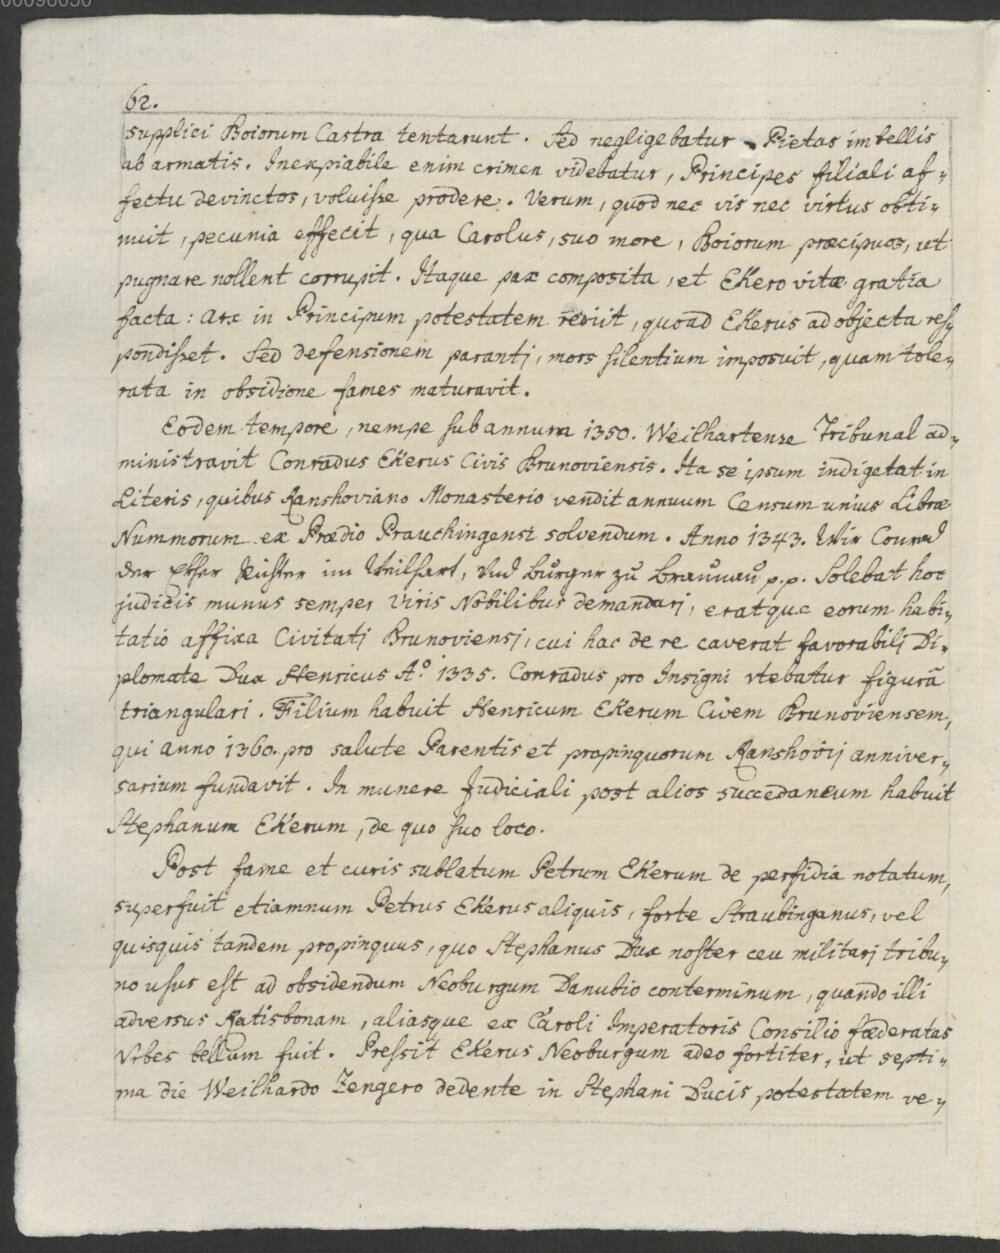 00096050
62.
supplici Boiorum Castra tentarunt. Sed negligebatur Pietas imbellis
ab armatis. Inexpiabile enim crimen videbatur, Principes filiali af-
fectu devinctos, voluisse prodere. Verum, quod nec vis nec virtus obti-
nuit, pecunia effecit, qua Carolus, suo more, Boiorum præcipuos, ut
pugnare nollent corrupit. Itaque pax composita, et Ekero vitæ gratia
facta: Arx in Principum potestatem rediit, quoad Ekerus ad objecta res-
pondisset. Sed defensionem parantj, mors silentium imposuit, quam tole-
rata in obsidione fames maturavit.
Eodem tempore, nempe sub annum 1350. Weilhartense Tribunal ad-
ministravit Conradus Ekerus Civis Brunoviensis. Ita se ipsum indigetat in
Literis, quibus Ranshoviano Monasterio vendit annuum Censum unius Libræ
Nummorum ex Prædio Prauchingensi solvendum. Anno 1343. Wir Conrad
der Ekher Richter im Weilhart, Vnd burger zu Braunau p.p. Solebat hoc
judicis munus semper Viris Nobilibus demandarj, eratque eorum habi-
tatio affixa Civitatj Brunoviensj, cui hac de re caverat favorabilj Di-
plomate Dux Henricus Aº 1335. Conradus pro Insigni vtebatur figurâ
triangulari. Filium habuit Henricum Ekerum Civem Brunoviensem,
qui anno 1360. pro salute Parentis et propinquorum Ranshovij anniver-
sarium fundavit. In munere Judiciali post alios succedaneum habuit
Stephanum Ekerum, de quo suo loco.
Post fame et curis sublatum Petrum Ekerum de perfidia notatum,
superfuit etiamnum Petrus Ekerus aliquis, forte Straubinganus, vel
quisquis tandem propinquus, quo Stephanus Dux noster ceu militarj tribu-
no usus est ad obsidendum Neoburgum Danubio conterminum, quando illi
adversus Ratisbonam, aliasque ex Caroli Imperatoris Consilio fœderatas
Vrbes bellum fuit. Pressit Ekerus Neoburgum adeo fortiter, ut septi-
ma die Weilhardo Zengero dedente in Stephani Ducis potestatem ve-